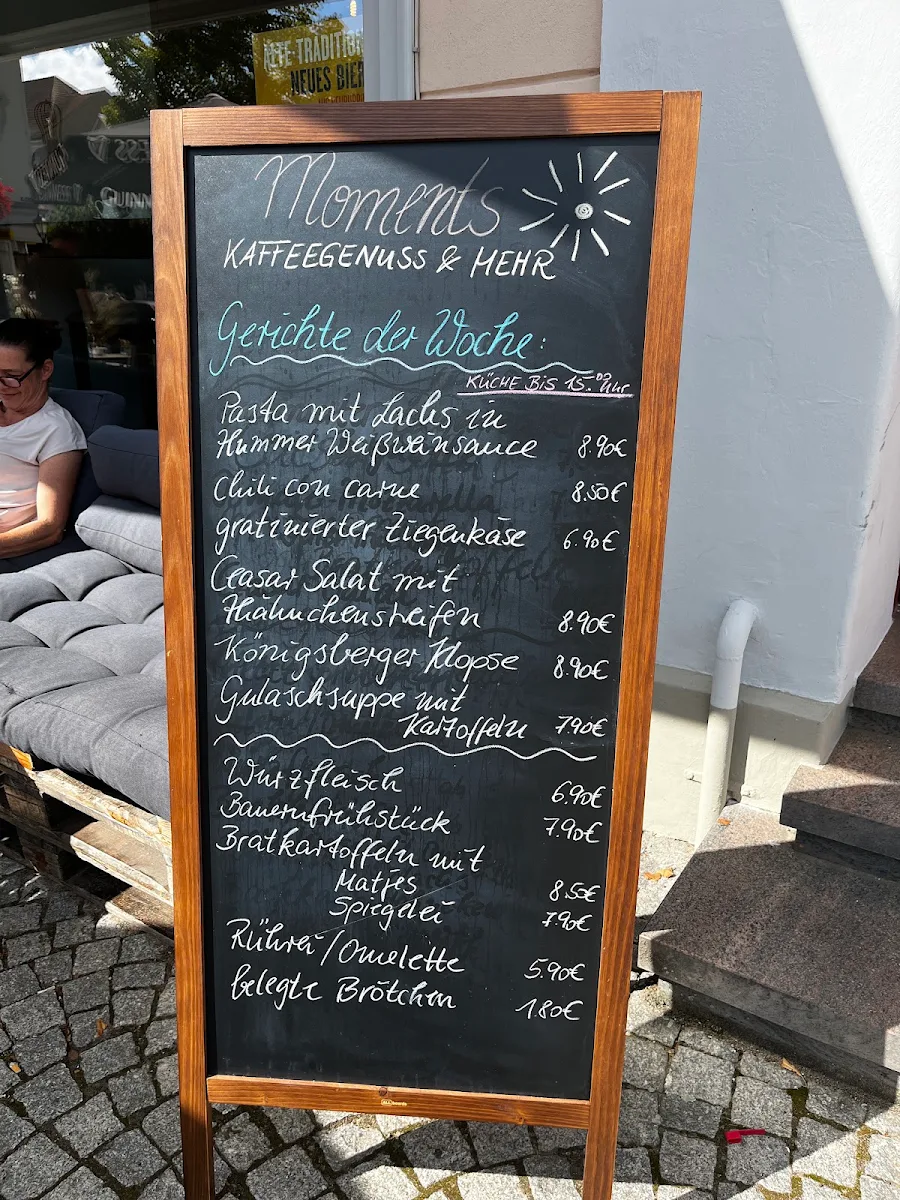 ALTE-TRADITION
NEUES BIER
GUINN
Moments
KAFFEEGENUSS & MEHR
Gerichte der Woche:
KÜCHE BIS 15.00 Uhr
Pasta mit Lachs in
Hummer Weißweinsauce 8.90€
Chili con carne 8.50€
gratinierter Ziegenkäse 6.90€
Ceasar Salat mit
Hähnchenstreifen 8.90€
Königsberger Klopse 8.90€
Gulaschsuppe mit
Kartoffeln 7.90€
Würzfleisch 6.90€
Bauernfrühstück 7.90€
Bratkartoffeln mit
Matjes 8.50€
Spiegelei 7.90€
Rührei/Omelette 5.90€
belegte Brötchen 1.80€